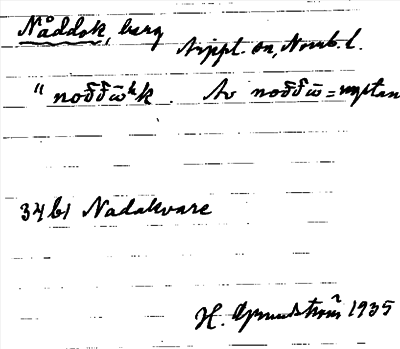 Nåddok, berg
Arjepl. sn, Norrb. l.
" noδ̄δ̄ω̄ᵏk. Av noδ̄δ̄ω̄ =
34 b1 Nadakvare
H. Grundström 1935